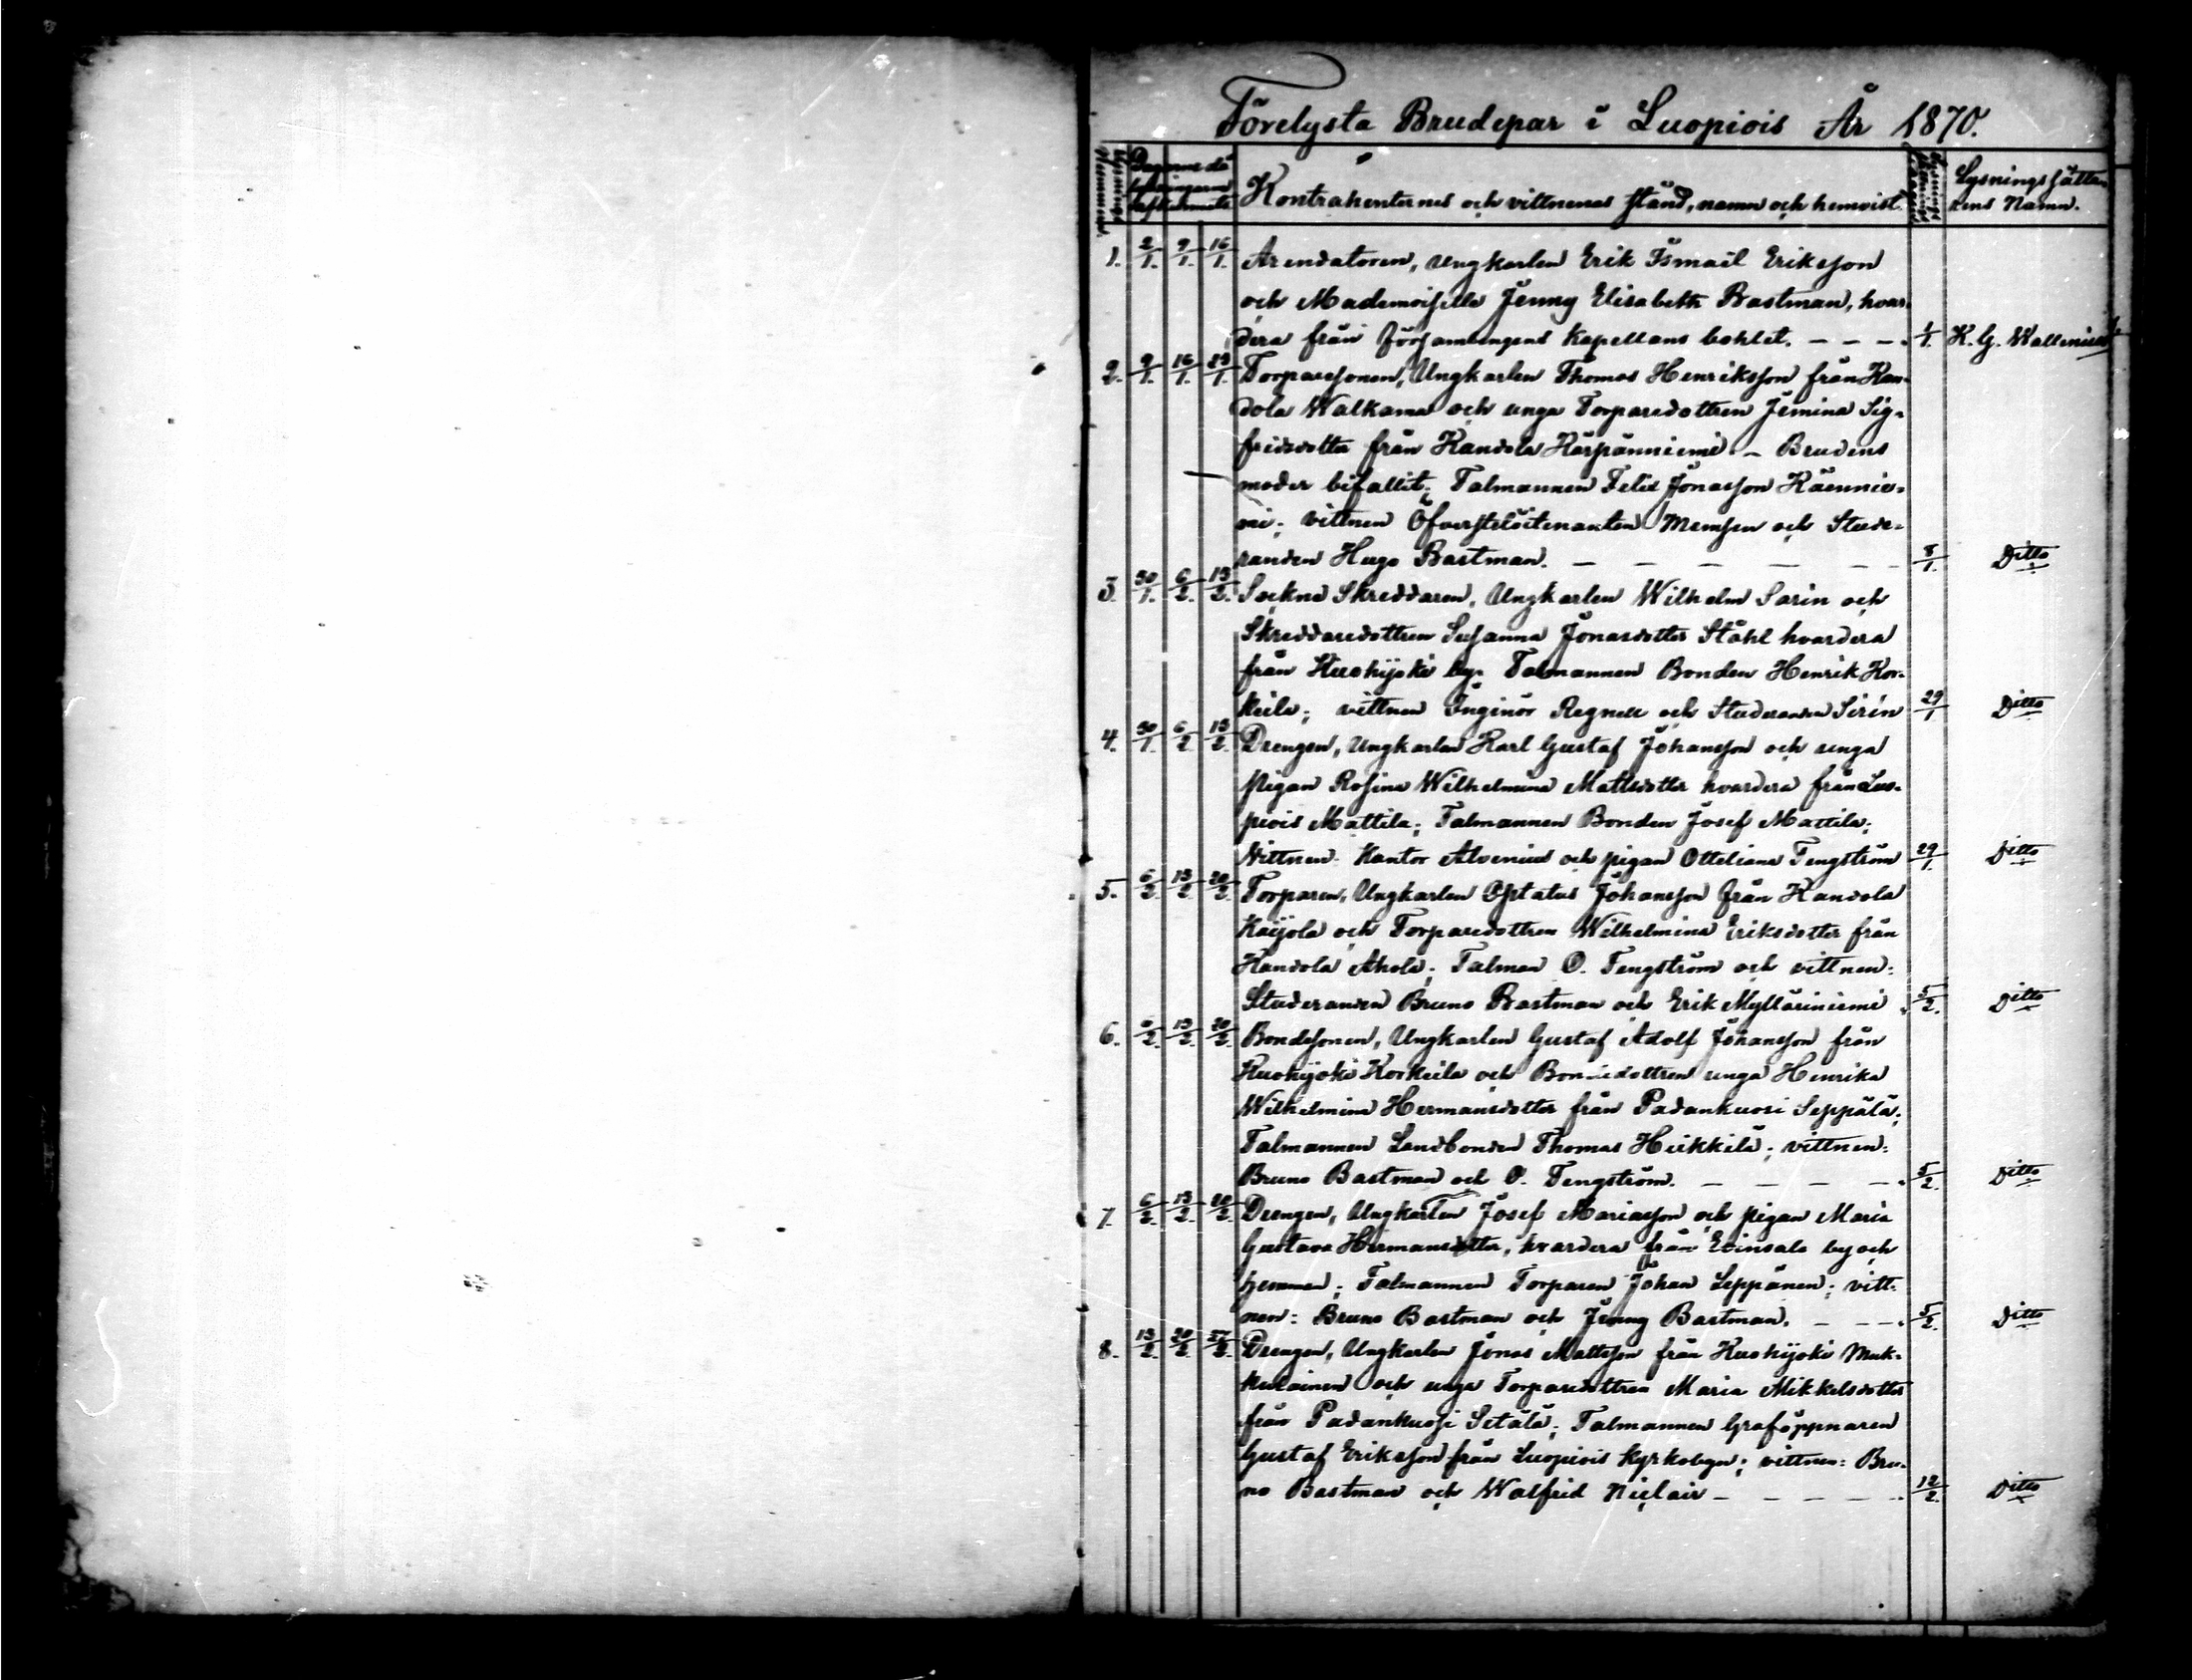 Förelysta Brudepar i Luopiois År 1870.
Lysnings Nummer. Dagarne då lysningarne Kontrahenternes och vittnenas stånd, namn och hemvist. Lysningssätta-
rens Namn.
1. 2/1. 9/1. 16/1. Arendatoren, Ungkarlen Erik Ismaël Eriksson
och Mademoiselle Jenny Elisabeth Bastman, hvar-
dera från Församlingens Kapellans bohlet. — — — 1/1. K. G. Wallenius
2. 9/1. 16/1. 23/1. Torparesonen, Ungkarlen Thomas Henriksson från Kan-
dola Walkama och unga Torparedottren Jemina Sig-
fridsdotter från Kandola Kärpänniemi. — Brudens
moder bifallit; Talmannen Felix Jonasson Käennie-
mi; vittnen Öfverstelöitenanten Memsen och Stude-
randen Hugo Bastman. — — — — — 8/1. Ditto
3. 30/1. 6/2. 13/2. Sockne Skreddaren, Ungkarlen Wilhelm Sarin och
Skreddaredottren Susanna Jonasdotter Ståhl hvardera
från Kuohijoki by. Talmannen Bonden Henrik Kor-
keila; vittnen Inginör Regnell och Studeranden Sirén 29/1 Ditto
4. 30/1. 6/2. 13/2. Drengen, Ungkarlen Karl Gustaf Johansson och unga
pigan Rosina Wilhelmina Mattsdotter hvardera från Luo-
piois Mattila; Talmannen Bonden Josef Mattila;
Vittnen: Kantor Alvenius och pigan Otteliana Tengström 29/1. Ditto
5. 6/2. 13/2. 20/2. Torparen, Ungkarlen Optatus Johansson från Kandola
Kaijola och Torparedottren Wilhelmina Eriksdotter från
Kandola Ahola; Talman O. Tengström och vittnen:
Studeranden Bruno Bastman och Erik Mylläriniemi 5/2. Ditto
6. 6/2. 13/2. 20/2. Bondesonen, Ungkarlen Gustaf Adolf Johansson från
Kuohijoki Korkeila och Bondedottren unga Henrika
Wilhelmina Hermansdotter från Padankuosi Seppälä;
Talmannen Landbonden Thomas Heikkilä; vittnen:
Bruno Bastman och O. Tengström. — — — — 5/2. Ditto
7. 6/2. 13/2. 20/2. Drengen, Ungkarlen Josef Mariasson och pigan Maria
Gustava Hermansdotter, hvardera från Evinsalo by och
hemman; Talmannen Torparen Johan Seppänen; vitt-
nen: Bruno Bastman och Jenny Bastman. — — — 5/2. Ditto
8. 13/2. 20/2. 27/2. Drengen, Ungkarlen Jonas Mattsson från Kuohijoki Muk-
kulainen och unga Torparedottren Maria Mikkelsdotter
från Padankuosi Setälä; Talmannen Graföppnaren
Gustaf Eriksson från Luopiois Kyrkobyn; vittnen: Bru-
no Bastman och Walfrid Niclair — — — — — 12/2. Ditto